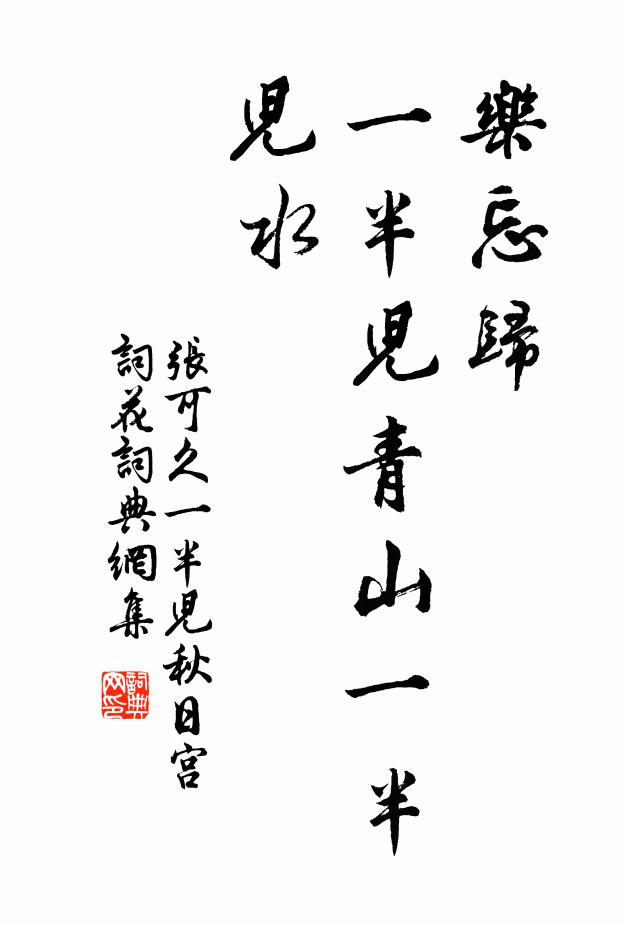 樂忘歸
一半児青山一半
児水
張可久一半児秋日宮
詞花詞典網集
詞典
网印